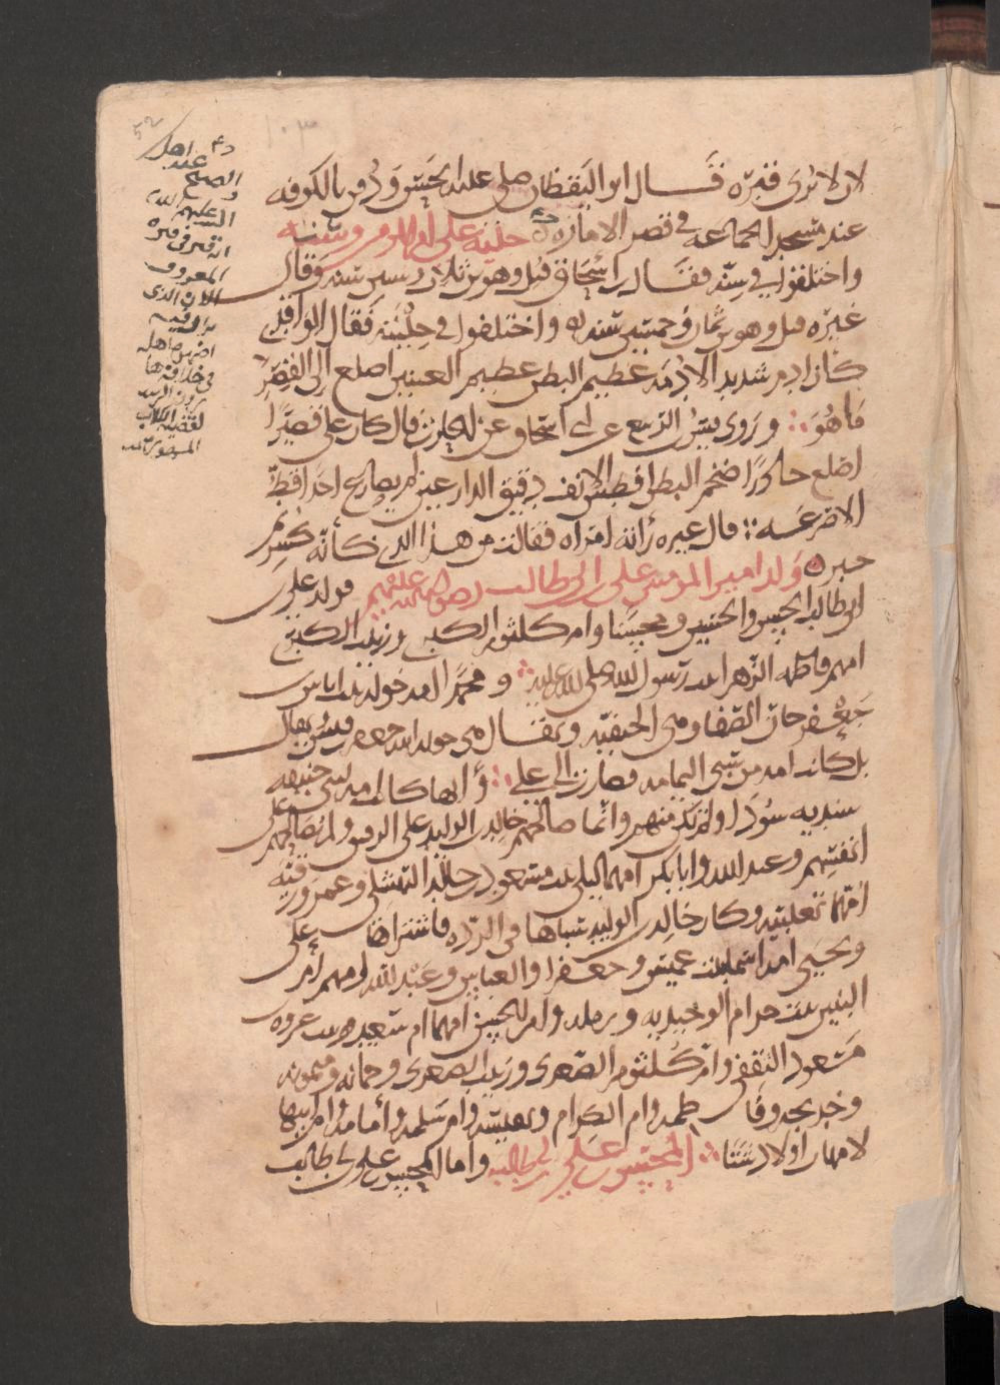 لان لا ترى قبره قــال ابو اليقظان صلى عليه الحسن ودفن بالكوفه
عند مسجد الجماعه في قصر الاماره حليته على السلم وسنه
واختلفوا في سنه فقال ابن اسحاق قتل وهو بن ثلاث وستين سنه وقال
غيره قتل وهو بن ثمان وخمسين سنه واختلفوا في حليته فقال الواقدي
كان ادم شديد الادمه عظيم البطن عظيم العينين اصلع الى القصر
ما هو وروى قيس بن الربيع عن ابي اسحاق عن الحارث قال كان علي قصيرا
اصلع حادرا ضخم البطن افطس الانف دقيق الذراعين لم يصارع احدا قط
الا صرعه قال غيره رأته امرأه فقالت من هذا الذي كأنه كسر ثم
جبر ولد امير المومنين علي بن ابي طالب رضوان الله عليهم فولد علي بن
ابي طالب الحسن والحسين ومحسنا وام كلثوم الكبرى وزينب الكبرى
امهم فاطمه الزهرا بنت رسول الله صلى الله عليه و محمدا امه خوله بنت اياس بن
جعفر جان الصفا وهى الحنفيه ويقال هى خوله ابنه جعفر بن قيس ويقال
بل كانت امه من سبي اليمامه فصارت الى علي وانها كانت امه لبني حنيفه
سنديه سودا ولم تكن منهم وانما صالحهم خالد بن الوليد على الرقيق ولم يصالحهم على
انفسهم وعبد الله وابا بكر امهما ليلى بنت مسعود بن خالد النهشلي وعمر ورقيه
امهما تغلبيه وكان خالد بن الوليد سباها في الرده فاشتراها علي
ويحيى امه اسما بنت عميس وجعفرا والعباس وعبد الله امهم ام
البنين بنت حرام الوحيديه ورمله وام الحسن امهما ام سعيد بنت عروه بن
مسعود الثقفي وام كلثوم الصغرى وزينب الصغرى وجمانه وميمونه
وخديجه وفاطمه وام الكرام ونفيسه وام سلمه وأمامه وام ابيها
لامهات اولاد شتا الحسن بن علي بن ابي طالب واما الحسن بن علي بن ابي طالب
عند اهل
الصحيح
عليهم السلم
انه قبر في قبره
المعروف
الان الذي